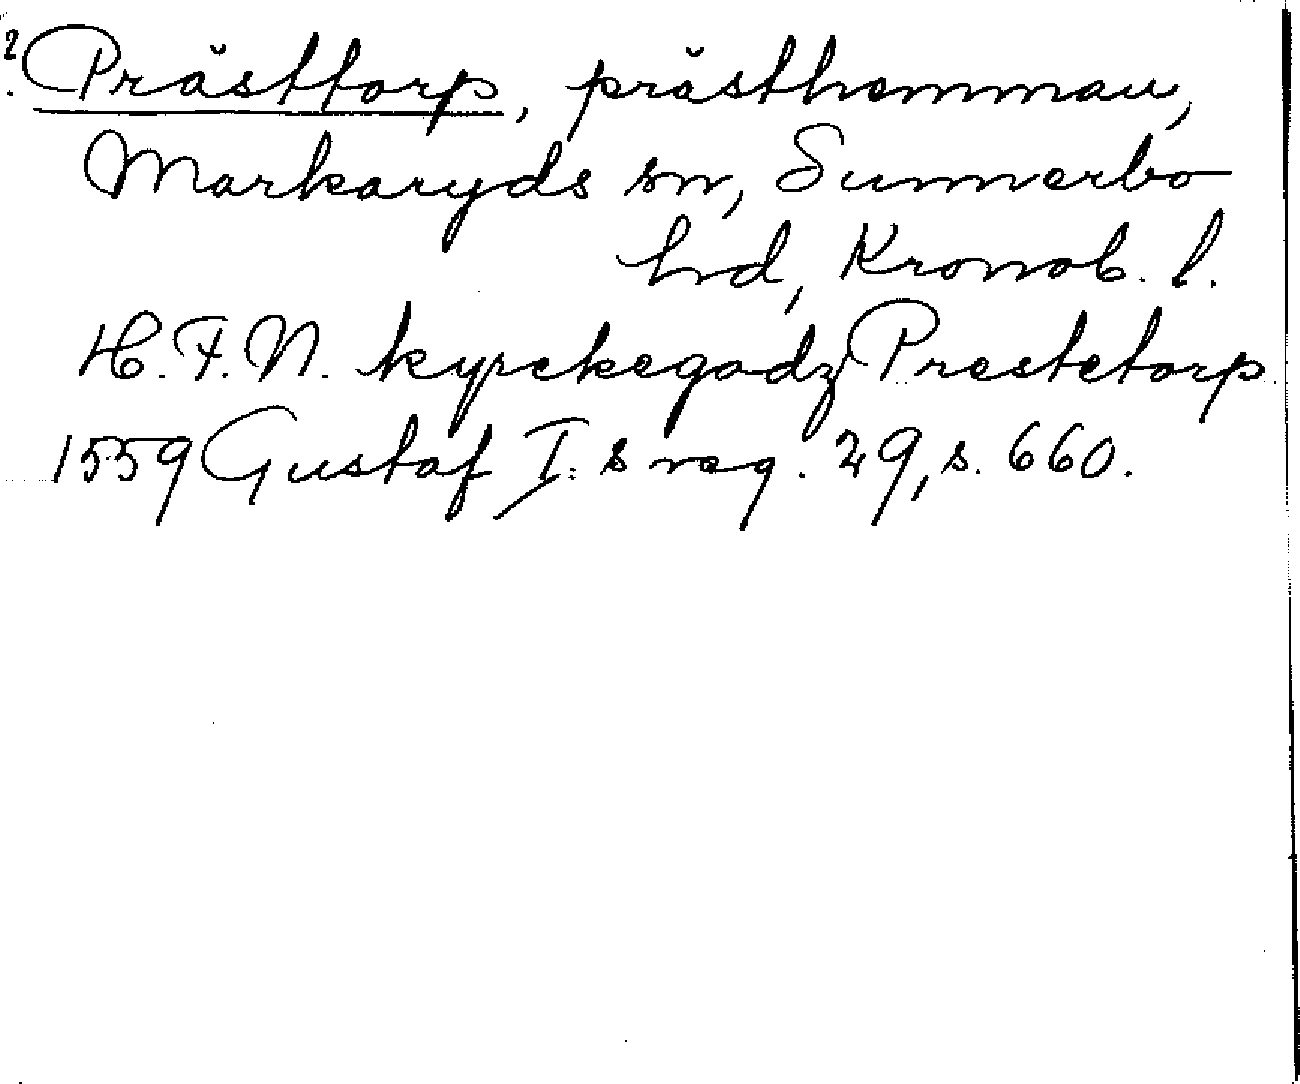 ? Prästtorp, prästhemman,
Markaryds sn, Sunnerbo
hd, Kronob. l.
H. F. N. kyrckegodz Prestetorp
1559 Gustaf I:s reg. 29, s. 660.